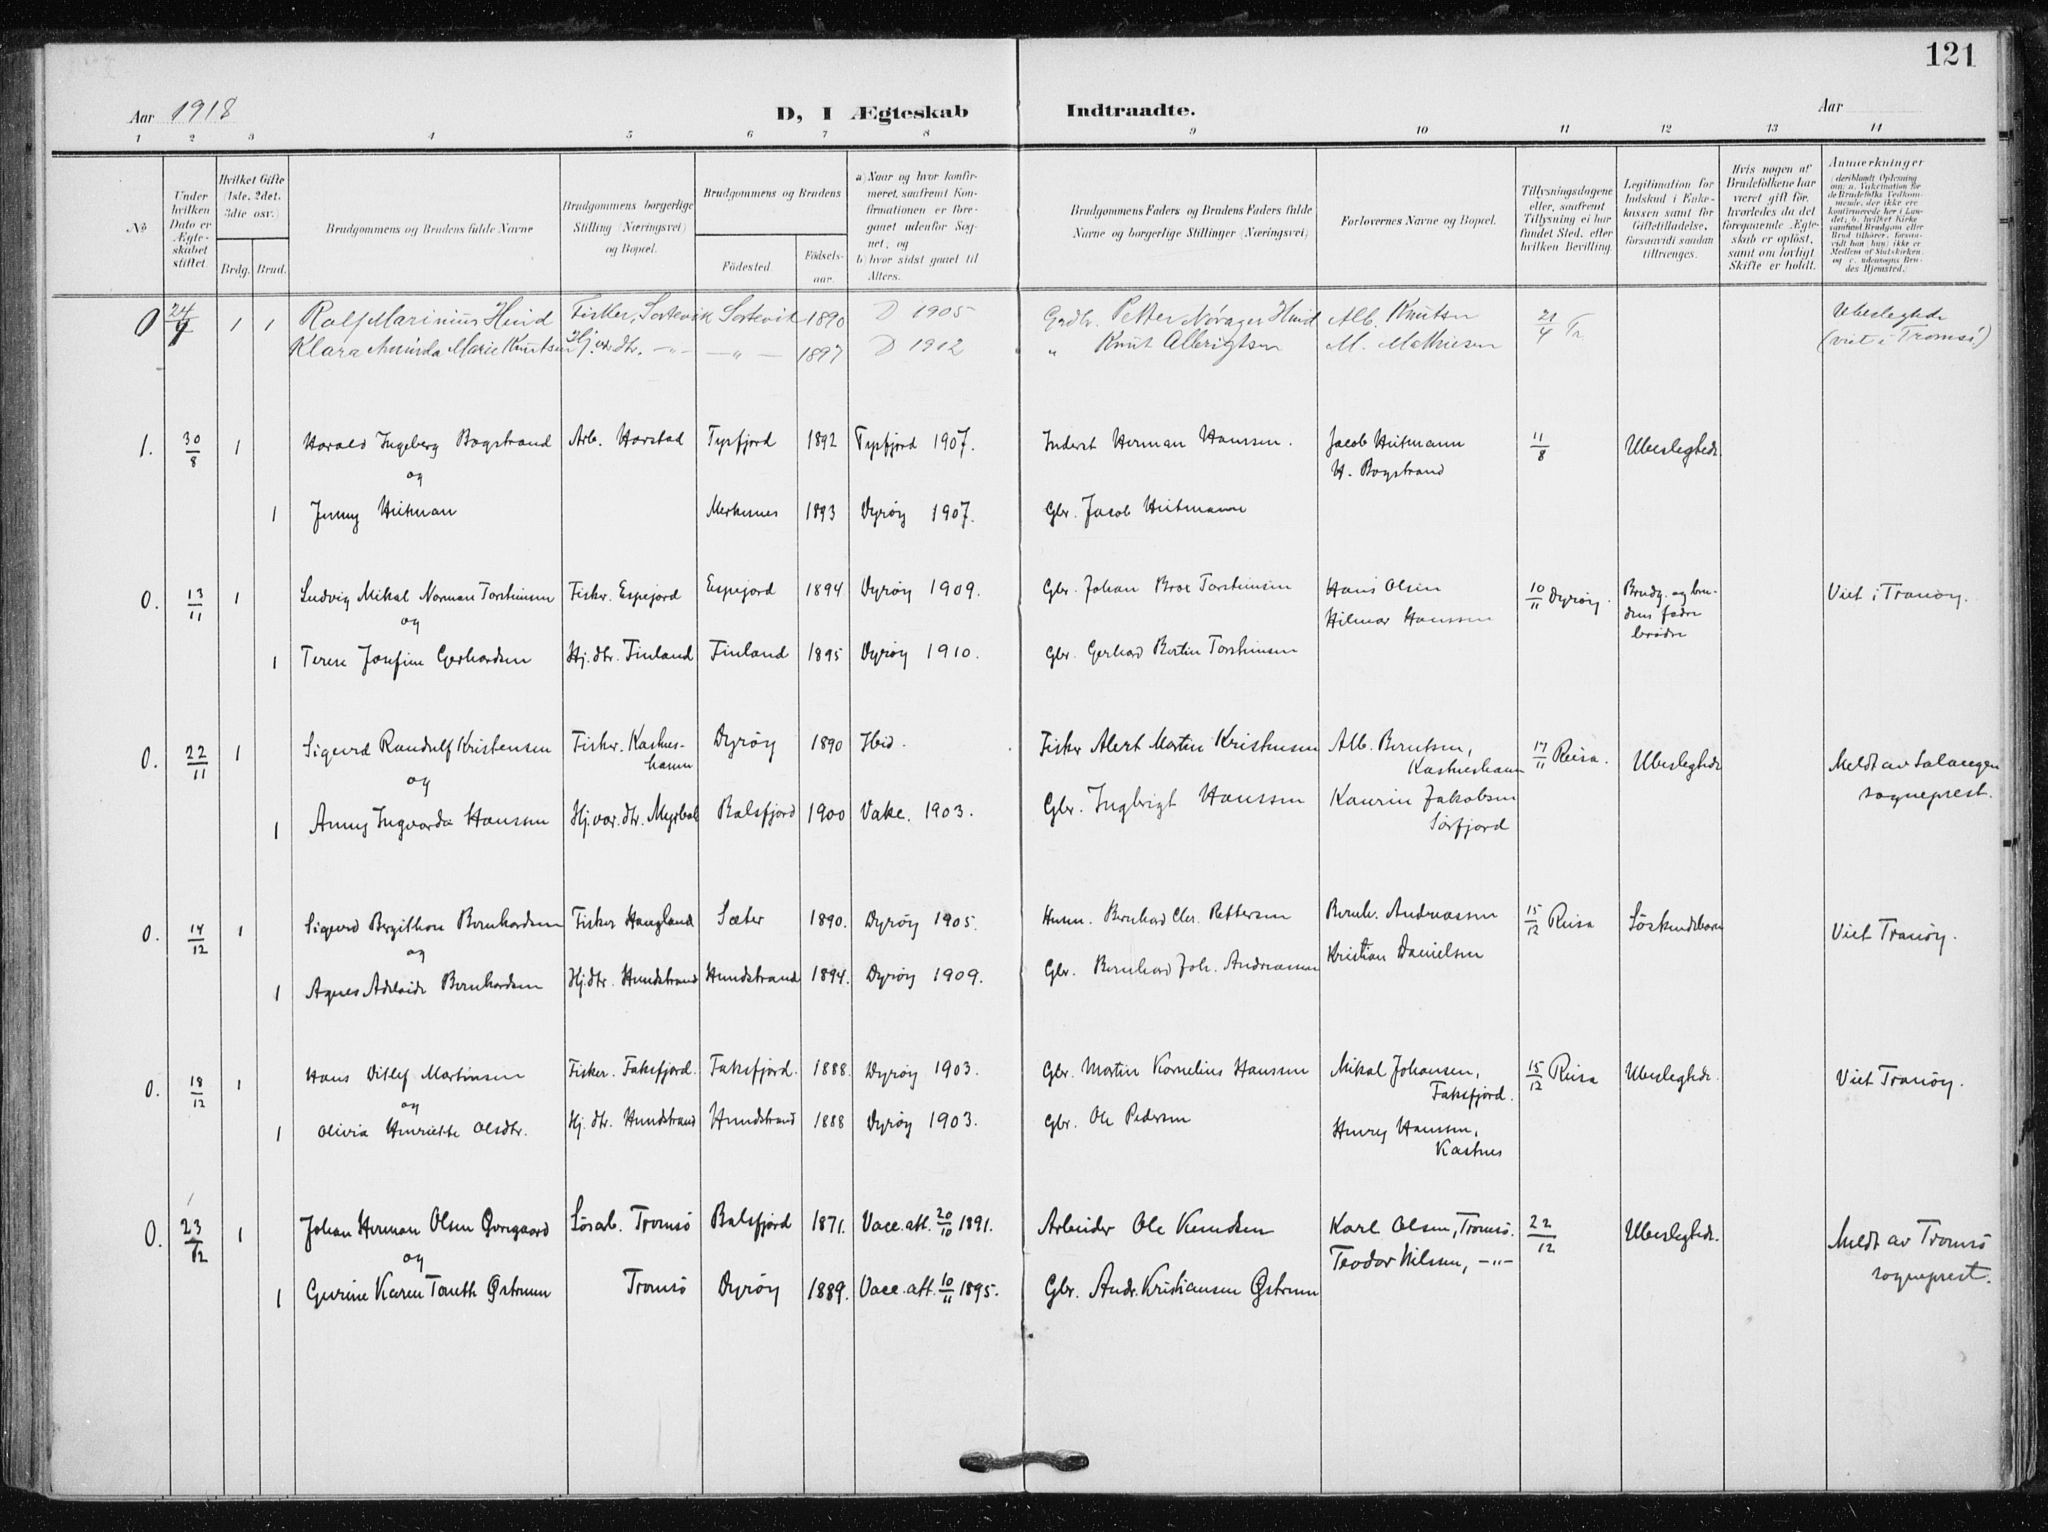 121
Aar 1918 D, I Ægteskab Indtraadte. Aar
1 2 3 4 5 6 7 8 9 10 11 12 13 14
No
Under hvilken Dato er Ægteskabet stiftet.
Hvilket Gifte (1ste, 2det, 3die osv.)
Brdg. Brud.
Brudgommens og Brudens fulde Navne
Brudgommens borgerlige Stilling (Næringsvei) og Bopæl.
Brudgommens og Brudens
Fødested. Fødselsaar.
a) Naar og hvor konfirmeret, saafremt Konfirmationen er foregaaet udenfor Sognet, og
b) hvor sidst gaaet til Alters.
Brudgommens Faders og Brudens Faders fulde Navne og borgerlige Stillinger (Næringsvei)
Forlovernes Navne og Bopæl.
Tillysningsdagene eller, saafremt Tillysning ei har fundet Sted, efter hvilken Bevilling.
Legitimation for Indskud i Enkekassen samt for Giftetilladelse, forsaavidt saadan tiltrænges.
Hvis nogen af Brudefolkene har været gift før, hvorledes da det foregaaende Ægteskab er opløst, samt om lovligt Skifte er holdt.
Anmerkninger (deriblandt Oplysning om: a. Vakcination for de Brudefolks Vedkommende, der ikke ere konfirmerede her i Landet; b. hvilket Kirkesamfund Brudgom eller Brud tilhører, forsaavidt han (hun) ikke er Medlem af Statskirken, og c. udensogns Brudes Hjemsted.)
0 24/4 1 1 Rolf Marinius Hind Fisker, Sortevik Sortevik 1890 D 1905 Grdbr. Petter Nørager Hind Alb. Knutsen 21/4 Tr. Ubeslegtede
Klara Aminda Marie Knutsen Hj.v. dtr. -"- -"- 1897 D 1912 " Knut Albrigtsen M. Mathiesen (viet i Tromsø)
1. 30/8 1 Harald Ingeberg Bogstrand Arb. Harstad Tysfjord 1892 Tysfjord 1907. Inderst Herman Hanssen. Jacob Heitmann 11/8 Ubeslegtede
og H. Bogstrand
1 Jenny Heitman Merkenes 1893 Dyrøy 1907. Gbr. Jacob Heitmann
0. 13/11 1 Ludvig Mikal Norman Torsteinsen Fisker. Espejord Espejord 1894 Dyrøy 1909. Gbr. Johan Brox Torsteinsen Hans Olsen 10/11 Dyrøy. Brudg. og brudens fædre brødre Viet i Tranøy.
og Hilmar Hanssen
1 Terese Josefine Gerhardsen Hj. dtr. Finland Finland 1895 Dyrøy 1910. Gbr. Gerhard Bertin Torsteinsen
0. 22/11 1 Sigurd Randulf Kristensen Fisker. Kastneshamn Dyrøy 1890 Ibid. Fisker Alert Martin Kristensen Alb. Berntsen, Kastneshamn 17/11 Reisa. Ubeslegtede Meldt av Salangen sogneprest.
og
1 Anny Ingvarda Hanssen Hj. var. dtr. Myrbak Balsfjord 1900 Vake. 1903. Gbr. Ingbrigt Hanssen Kaurin Jakobsen Sørfjord
0. 14/12 1 Sigurd Bergithon Bernhardsen Fisker Haugland Sæter 1890. Dyrøy 1905. Husm. Bernhard Chr. Pettersen Bernh. Andreassen 15/12 Reisa Søskendebarn Viet Tranøy.
og Kristian Danielsen
1 Agnes Adelaide Bernhardsen Hj. dtr. Hundstrand Hundstrand 1894. Dyrøy 1909. Gbr. Bernhard Joh. Andreassen
0. 18/12 1 Hans Ditlef Martinsen Fisker. Faksfjord. Faksfjord. 1888. Dyrøy 1903. Gbr. Martin Kornelius Hanssen Mikal Johansen, Faksfjord. 15/12 Reisa Ubeslegtede. Viet Tranøy.
og
1 Olivia Henriette Olsdtr. Hj. dtr. Hundstrand Hundstrand 1888 Dyrøy 1903. Gbr. Ole Pedersen Henry Hanssen, Kastnes
0. 23/12 1 Johan Herman Olsen Øvregaard Løsarb. Tromsø Balsfjord 1871. Vacc. att. 20/10 1891. Arbeider Ole Knudsen Karl Olsen, Tromsø. 22/12 Ubeslegtede. Meldt av Tromsø sogneprest.
og Teodor Nilssen, -"-
1 Gurine Karen Tomth Østrum Tromsø Dyrøy 1889. Vacc. att. 10/11 1895. Gbr. Andr. Kristiansen Østrum